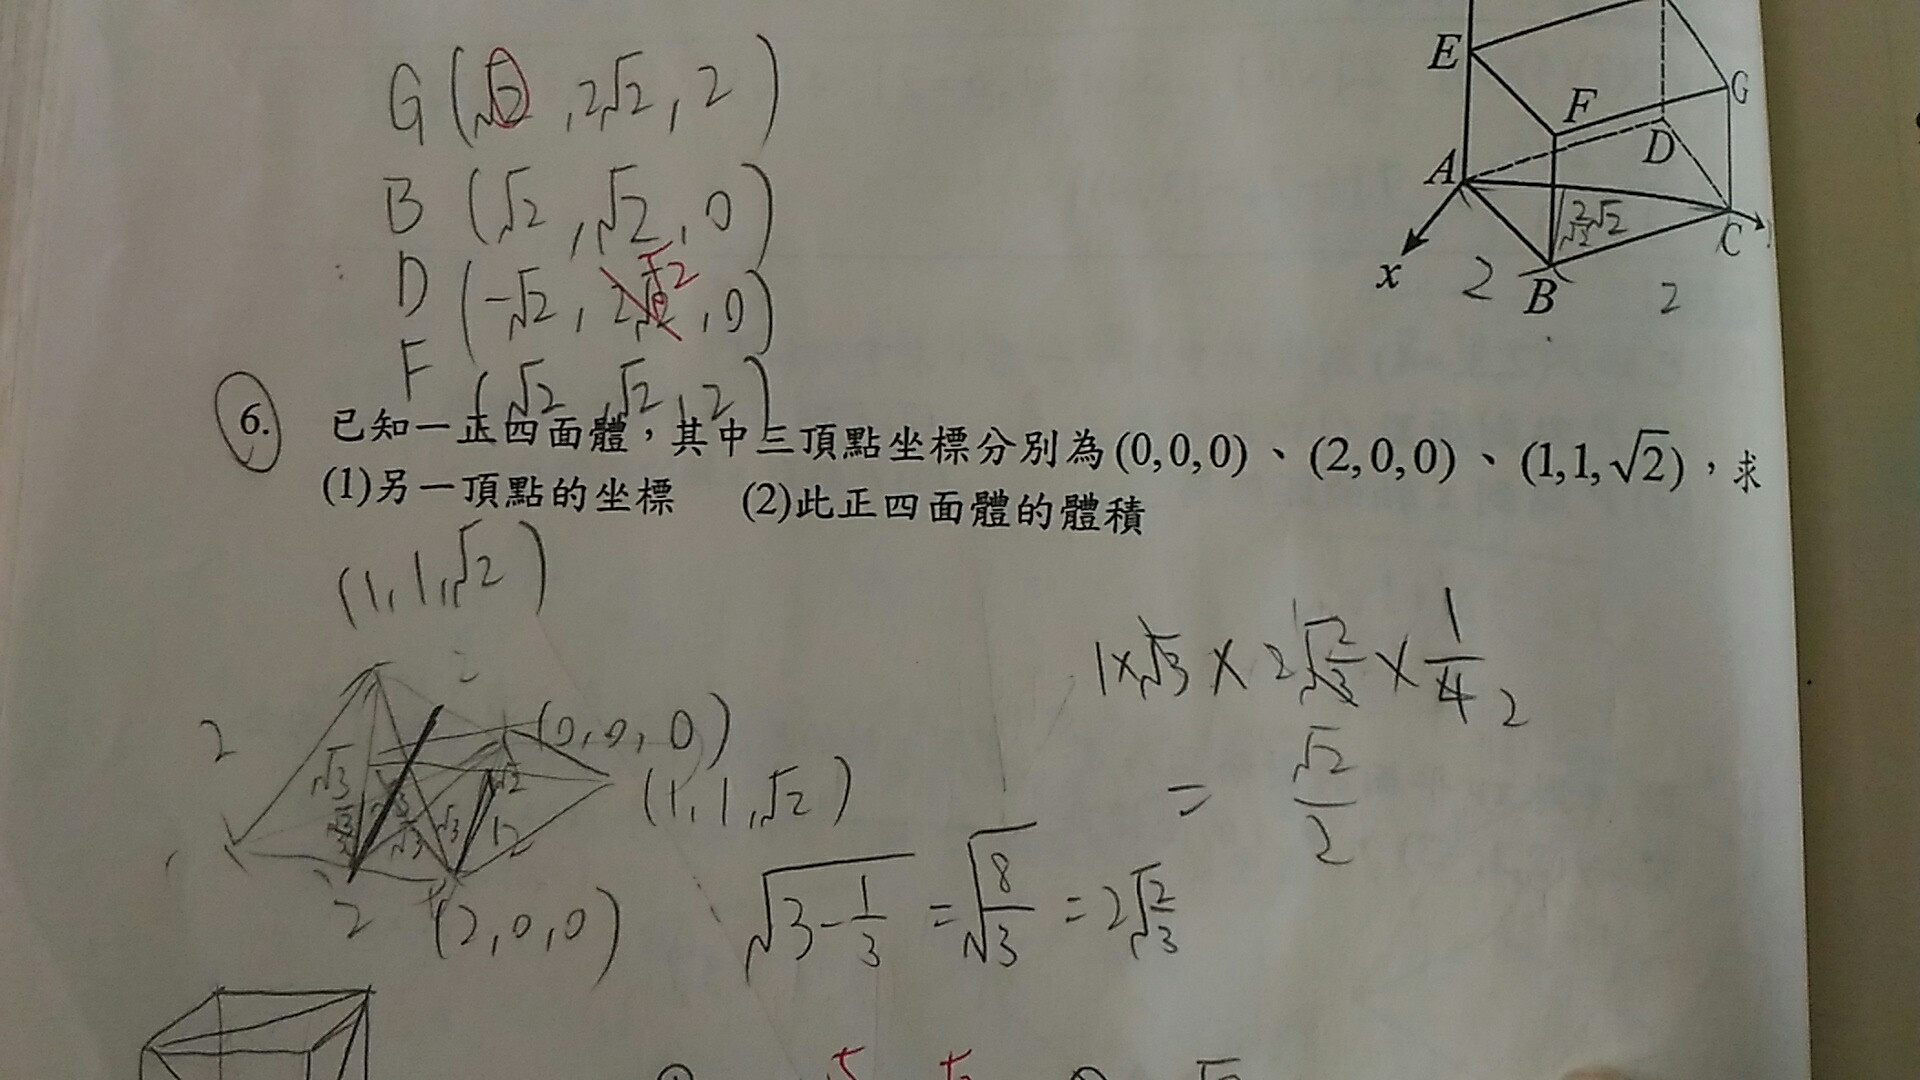 G(√2, 2√2, 2)
B (√2, √2, 0)
D (-√2, √2, 0)
F (√2, √2, 2)
E
F
G
A
D
C
x
B
2
2
6. 已知一正四面體，其中三頂點坐標分別為(0,0,0)、(2,0,0)、(1,1,√2)，求
(1)另一頂點的坐標 (2)此正四面體的體積
(1, 1, √2)
1×√3 × 2√2/√3 × 1/4 2
= √2/2
2
2
(0, 0, 0)
√3
(1, 1, √2)
2
(2, 0, 0)
√(3-1/3) = √(8/3) = 2√(2/3)